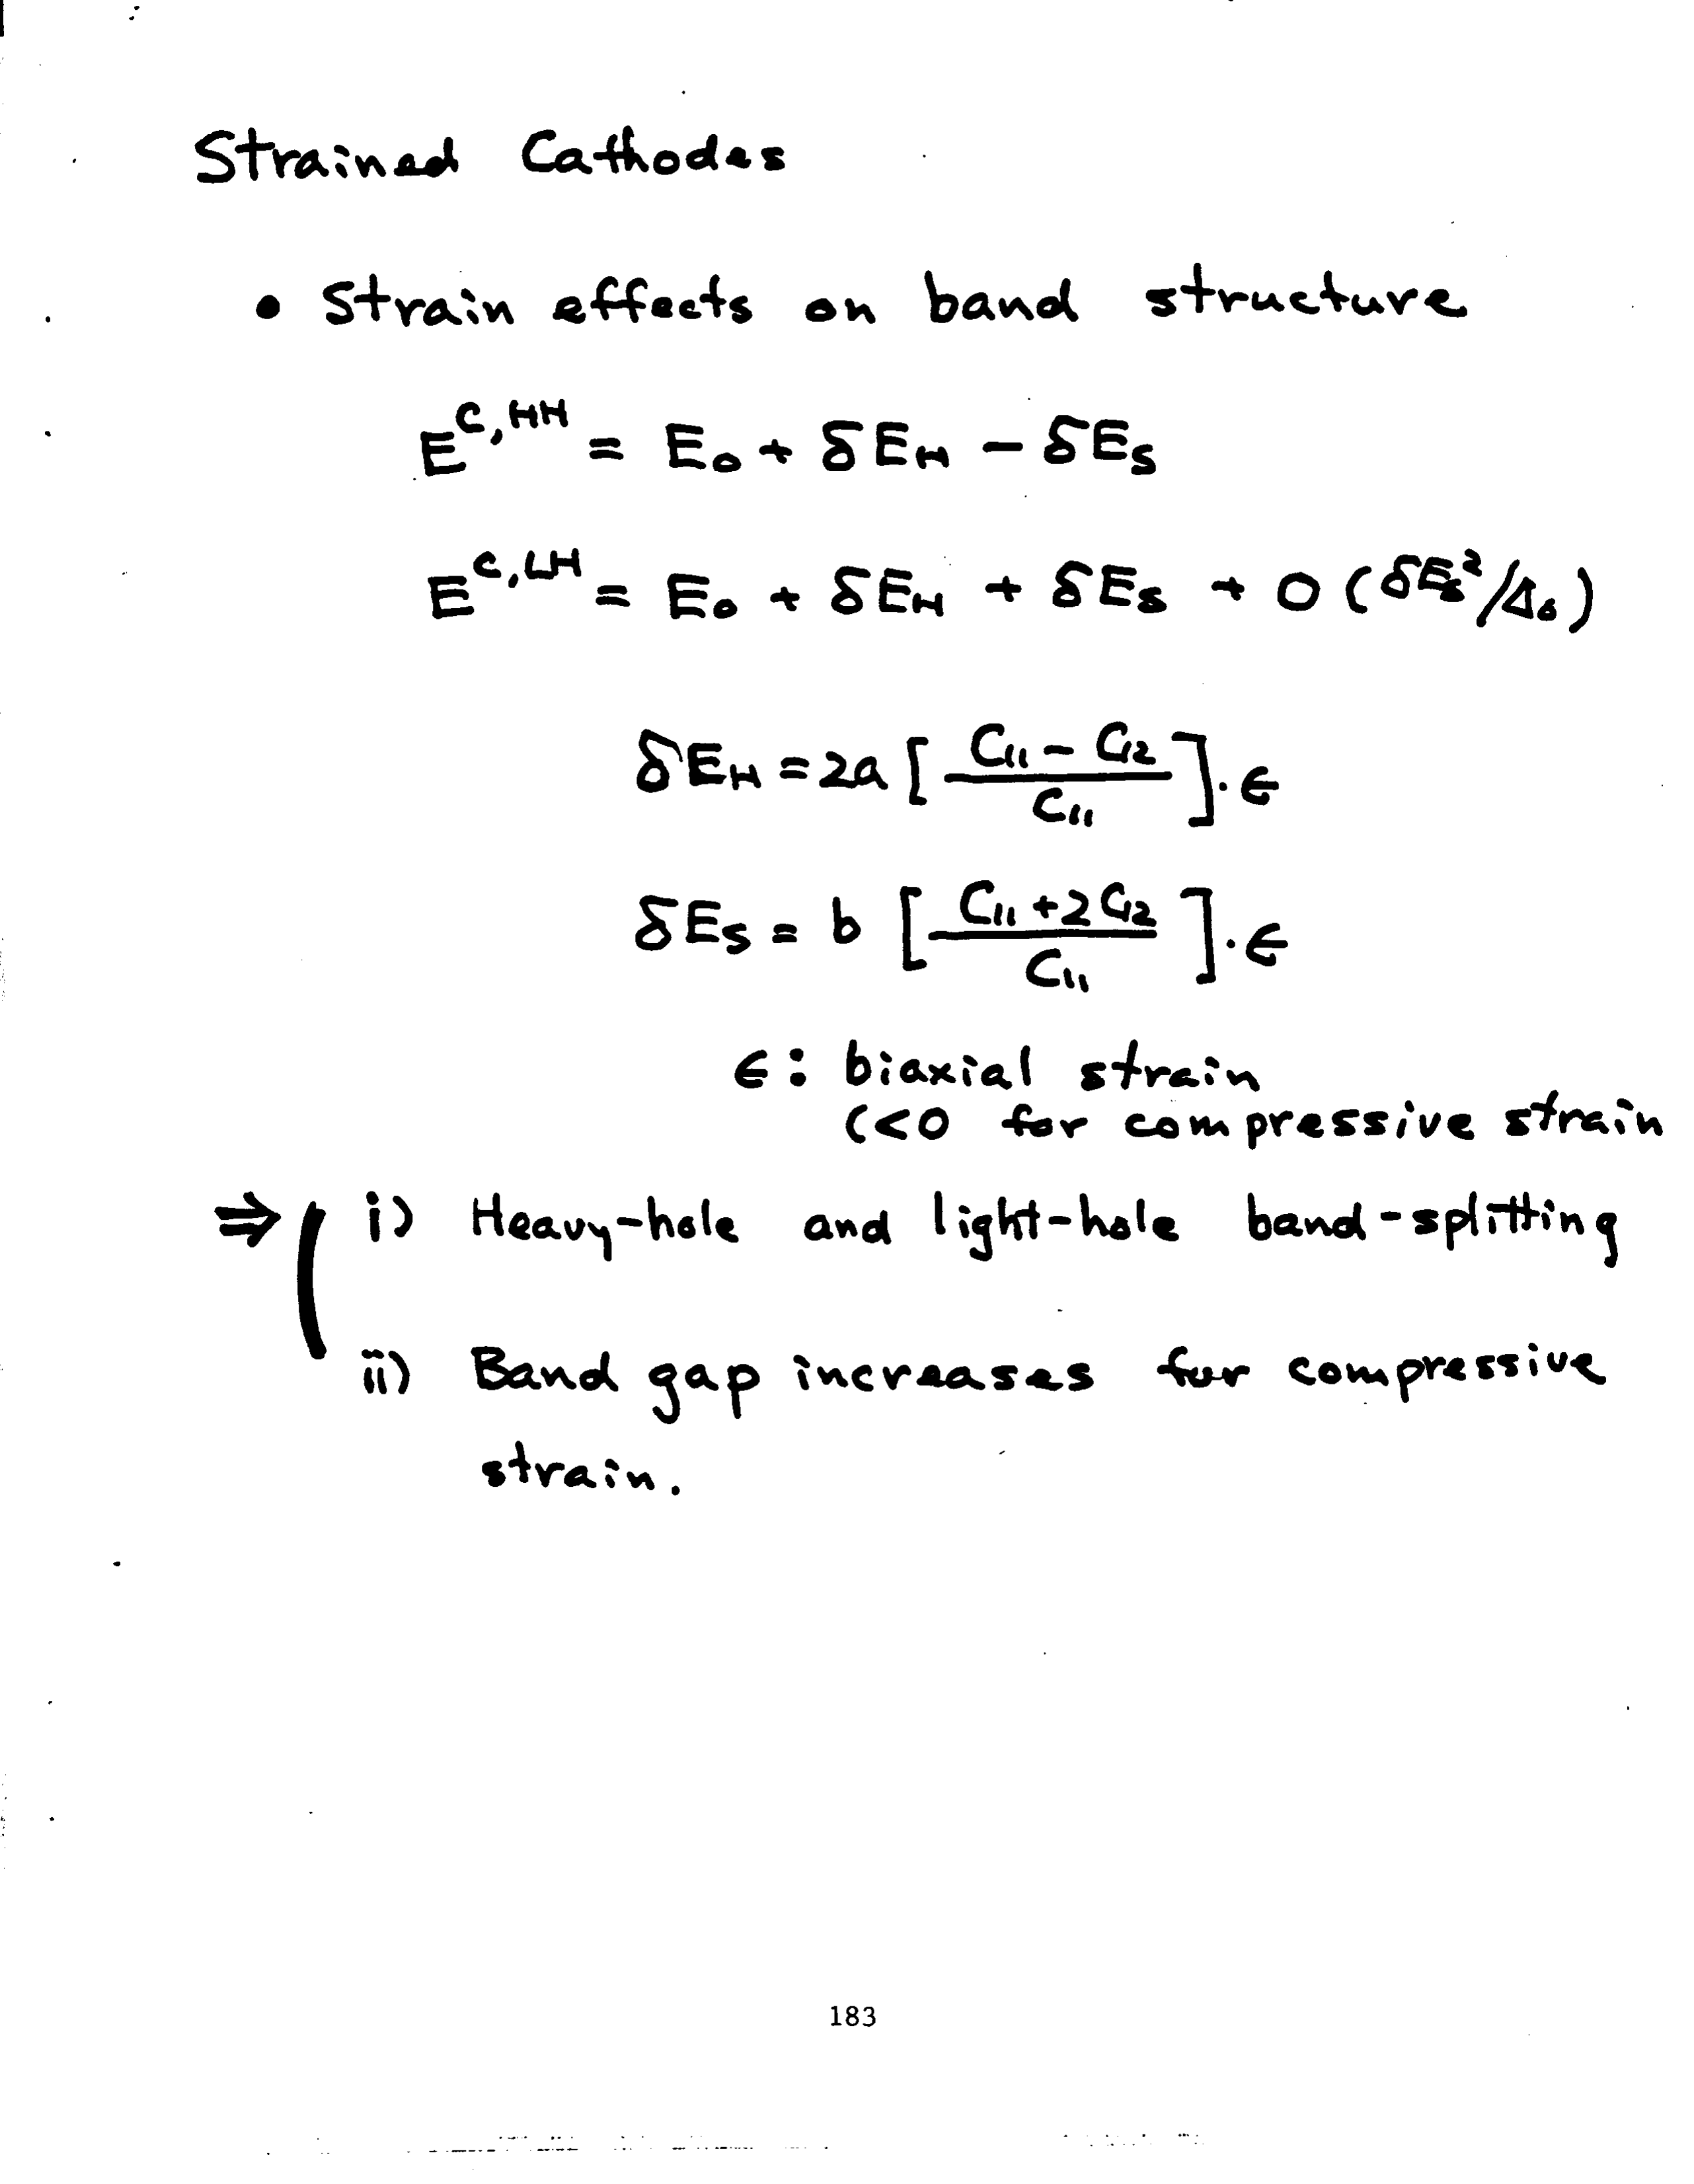 Strained Cathodes
• Strain effects on band structure
E^{C,HH} = E₀ + δE_H − δE_S
E^{C,LH} = E₀ + δE_H + δE_S + O(δE_S²/Δ₀)
δE_H = 2a [ (C₁₁ − C₁₂) / C₁₁ ] · ϵ
δE_S = b [ (C₁₁ + 2C₁₂) / C₁₁ ] · ϵ
ϵ: biaxial strain
(<0 for compressive strain
⇒ ( i) Heavy-hole and light-hole band-splitting
ii) Band gap increases for compressive
strain.
183